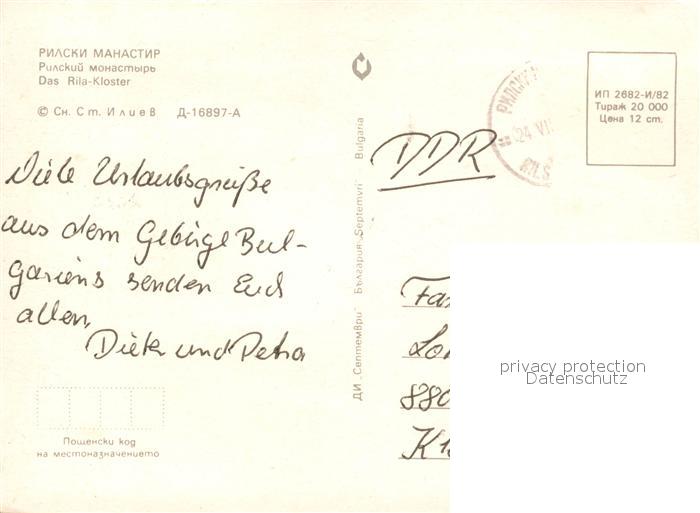 РИЛСКИ МАНАСТИР
Рилский монастырь
Das Rila-Kloster
© Сн. Ст. Илиев Д-16897-А
Viele Urlaubsgrüße
aus dem Gebirge Bul-
gariens senden Euch
allen,
Dieter und Petra
Пощенски код
на местоназначението
ДИ „Септември" България „Septemvri" Bulgaria
24 VII
RILS
ИП 2682-И/82
Тираж 20 000
Цена 12 ст.
DDR
Fa
880
privacy protection
Datenschutz